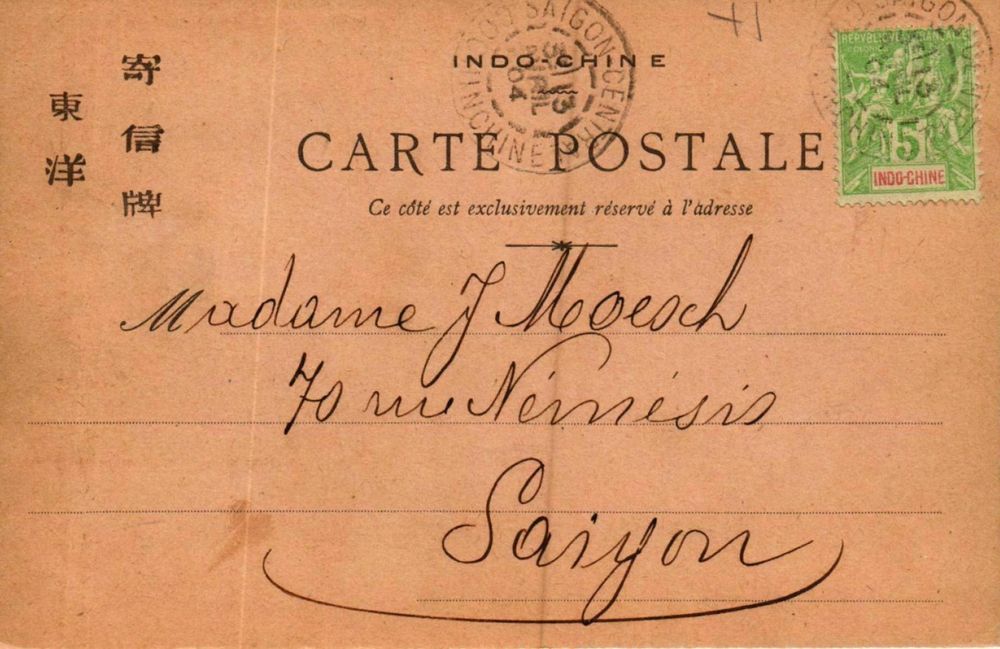 寄信牌
東洋
INDO-CHINE
CARTE POSTALE
Ce côté est exclusivement réservé à l'adresse
SAIGON CENTRAL
13
AVRIL
04
COCHINCHINE
RÉPUBLIQUE FRANÇAISE
COLONIES
5
INDO-CHINE
Madame J Moesch
70 rue Némésis
Saigon